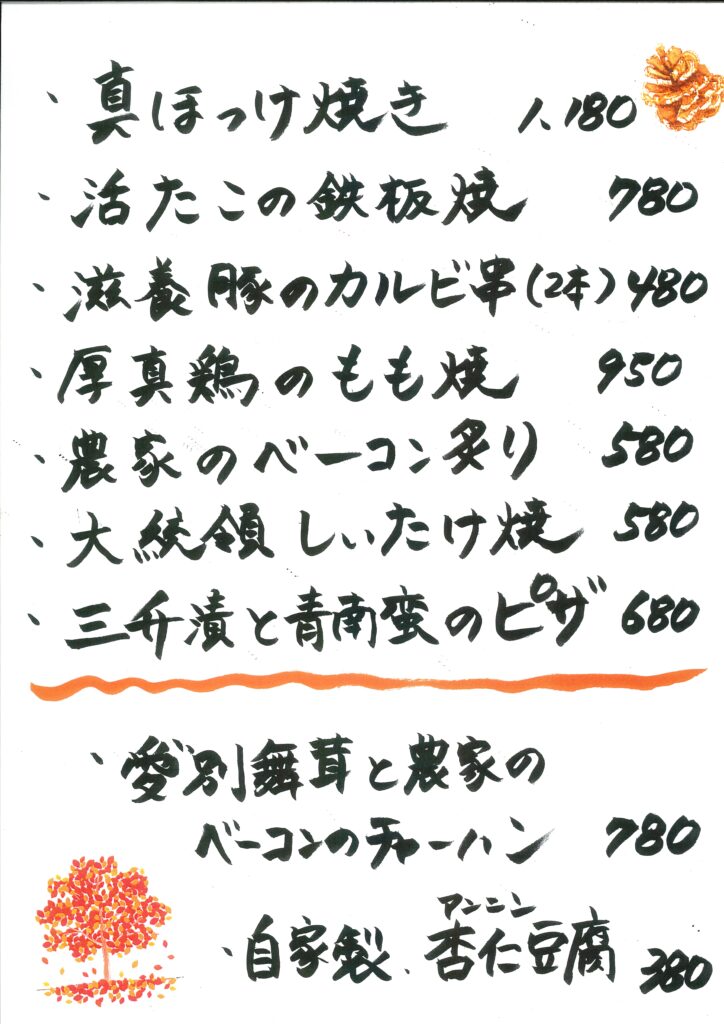 ・真ほっけ焼き 1,180
・活たこの鉄板焼 780
・滋養豚のカルビ串(2本) 480
・厚真鶏のもも焼 950
・農家のベーコン炙り 580
・大統領しいたけ焼 580
・三升漬と青南蛮のピザ 680
・愛別舞茸と農家の
ベーコンのチャーハン 780
アンニン
・自家製、杏仁豆腐 380